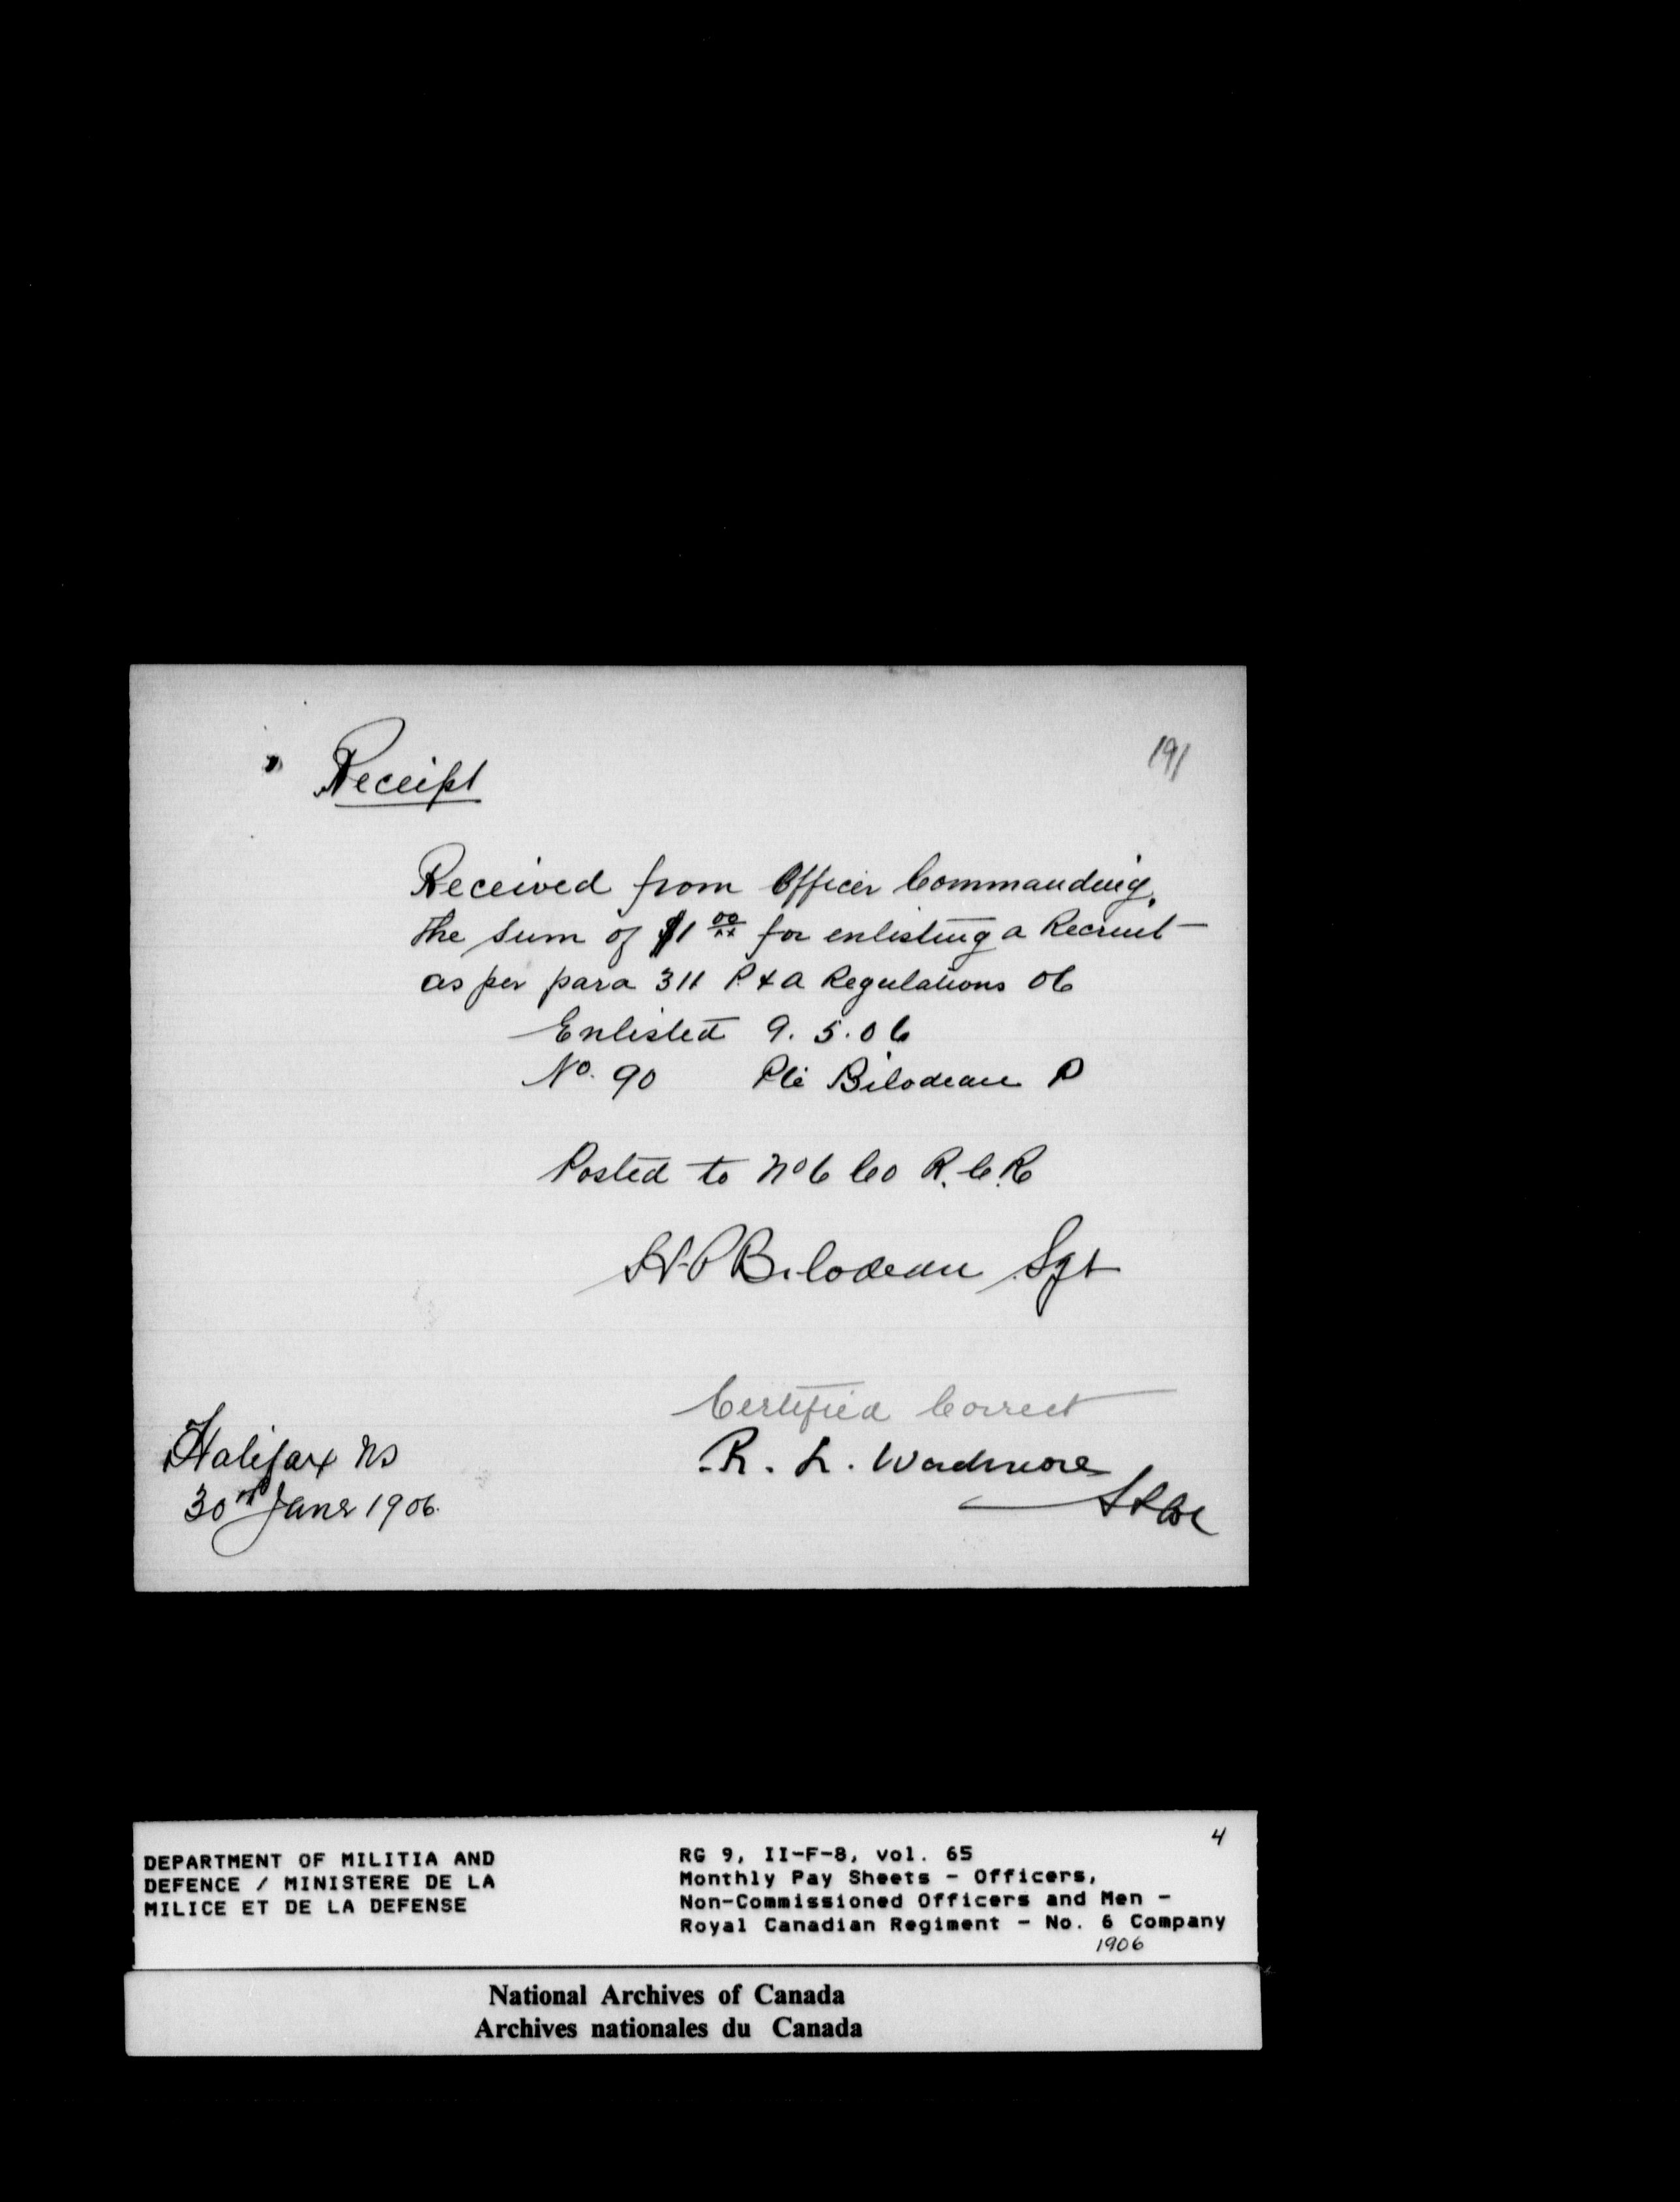 191
Receipt
Received from Officer Commanding,
the sum of $1 00/xx for enlisting a Recruit —
as per para 311 P & A Regulations 06
Enlisted 9. 5. 06
No. 90 Pte Bilodeau P
Posted to No 6 Co R. C. R
Bilodeau Sgt
Certified Correct
R. L. Wadmore
Halifax NS
30th June 1906.
4
DEPARTMENT OF MILITIA AND
DEFENCE / MINISTERE DE LA
MILICE ET DE LA DEFENSE
RG 9, II-F-8, vol. 65
Monthly Pay Sheets - Officers,
Non-Commissioned Officers and Men -
Royal Canadian Regiment - No. 6 Company
1906
National Archives of Canada
Archives nationales du Canada